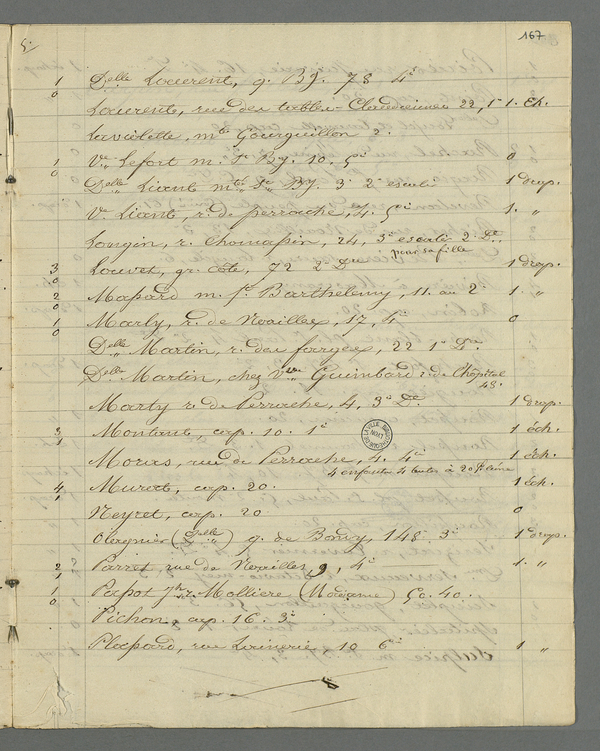 167
1 Delle Laurent, q. Bj. 78 4e
0
Laurent, rue des tables-Claudiennes 22, 1e 1. Ech.
Laviolette, mtée Gourguillon 2.
1 Ve Lefort m. St Bj. 10. 5e 0
0
Delle Liante mtée St Bj. 3 2e escalier 1 drap.
Ve Liante, r. de perrache, 4. 5e 1. "
Longin, r. Chomapin, 24, 3e escalier 2. De
pour sa fille
Louvet, gr. côte, 72 2 Dme 1 drap.
3
0
Mapard m. St Barthélemy, 11. au 2 1. "
2
0
Marly, r. de Noailles, 17, 4e 0
1
0
Delle Martin, r. des forges, 22 1e De
Delle Martin, chez Vve Guimbard r. de l'hôpital 48.
Marty r. de Perrache, 4, 3e De 1 drap.
3 Montant, carp. 10. 1e 1 éch.
1
Moras, rue de Perrache, 4. 4e 1 éch.
4 enfants
4 Murat, carp. 20. 1 éch.
1
Neyret, carp. 20 0
Olagnier (Delle) q. de Bondy, 148. 3e 1 drap.
2 Parret rue de Noailles, 9, 4e 1. "
1
1 Papot r. Mollière (Madame) 40.
0
Pichon, carp. 16. 3e
Plapard, rue Lainerie 10 6e 1 "